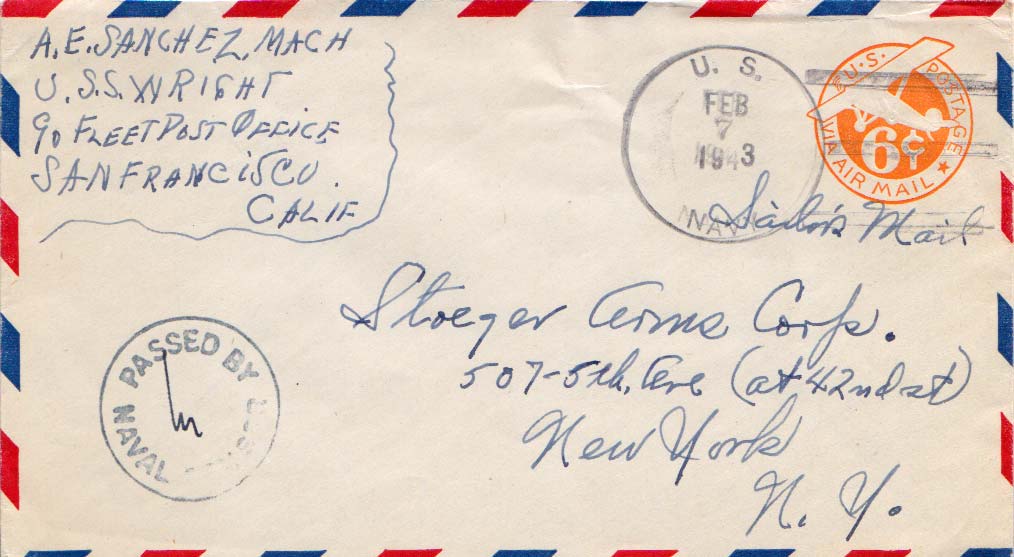 A. E. SANCHEZ, MACH
U.S.S. WRIGHT
c/o FLEET POST OFFICE
SAN FRANCISCO.
CALIF
U. S.
FEB
7
1943
NAVY
U.S. POSTAGE
6¢
VIA AIR MAIL
Sailor's Mail
Stoeger Arms Corp.
507-5th. Ave (at 42nd st)
New York
N. Y.
PASSED BY
NAVAL